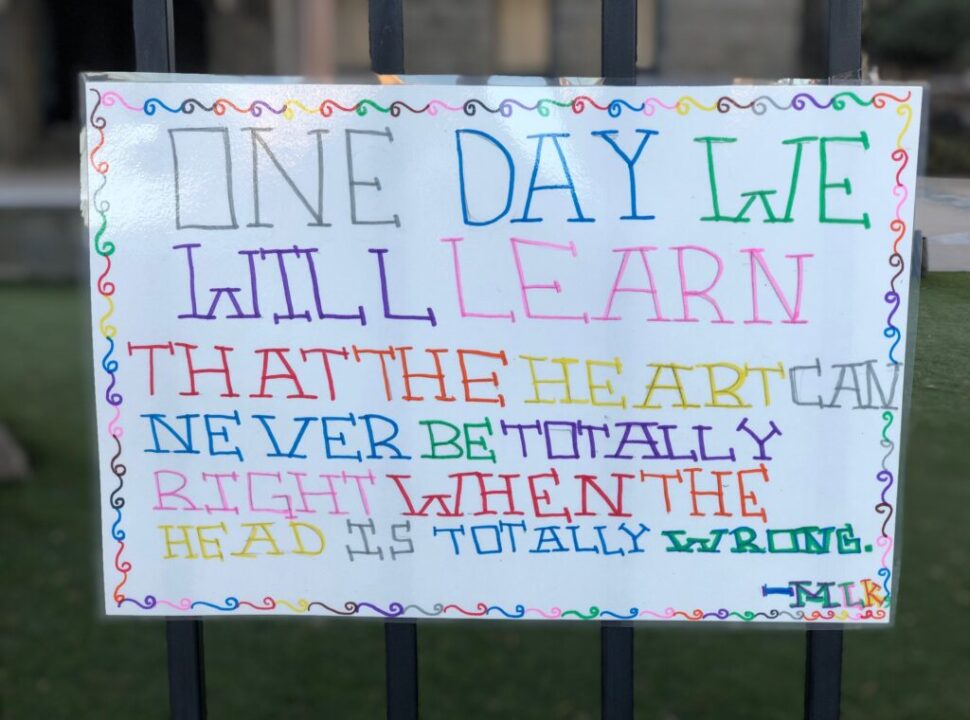 ONE DAY WE
WILL LEARN
THAT THE HEART CAN
NEVER BE TOTALLY
RIGHT WHEN THE
HEAD IS TOTALLY WRONG.
-MLK